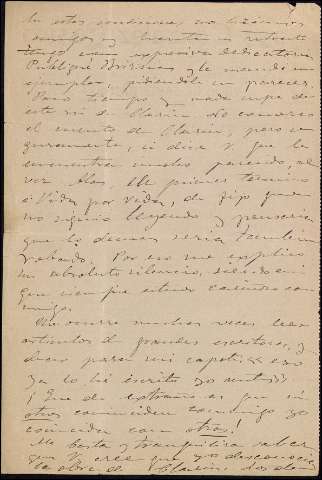 En estas condiciones nos hicimos
amigos y
una expresiva dedicatoria.
Publiqué Brismas y le mandé un
ejemplar, pidiéndole un parecer.
Pasó tiempo y nada supe de
este ni de Clarín. No conozco
el cuento de Clarín, pero
seguramente, si dice V. que lo
encuentra mucho parecido, al
ver Alas, en primer término
"Vida por vida", de fijo que
no siguió leyendo y pensaría
que lo demás sería también
robado. Por eso me explico
su absoluto silencio, siendo así
que siempre estuvo cariñoso con-
migo.
Me ocurre muchas veces leer
artículos de grandes escritores, y
digo para mi capote: eso
ya lo he escrito yo
¡Qué de extraño es que si
otros coinciden conmigo yo
coincida con otros!
Me basta y tranquiliza saber
que V. cree que yo desconocía
la obra de Clarín.